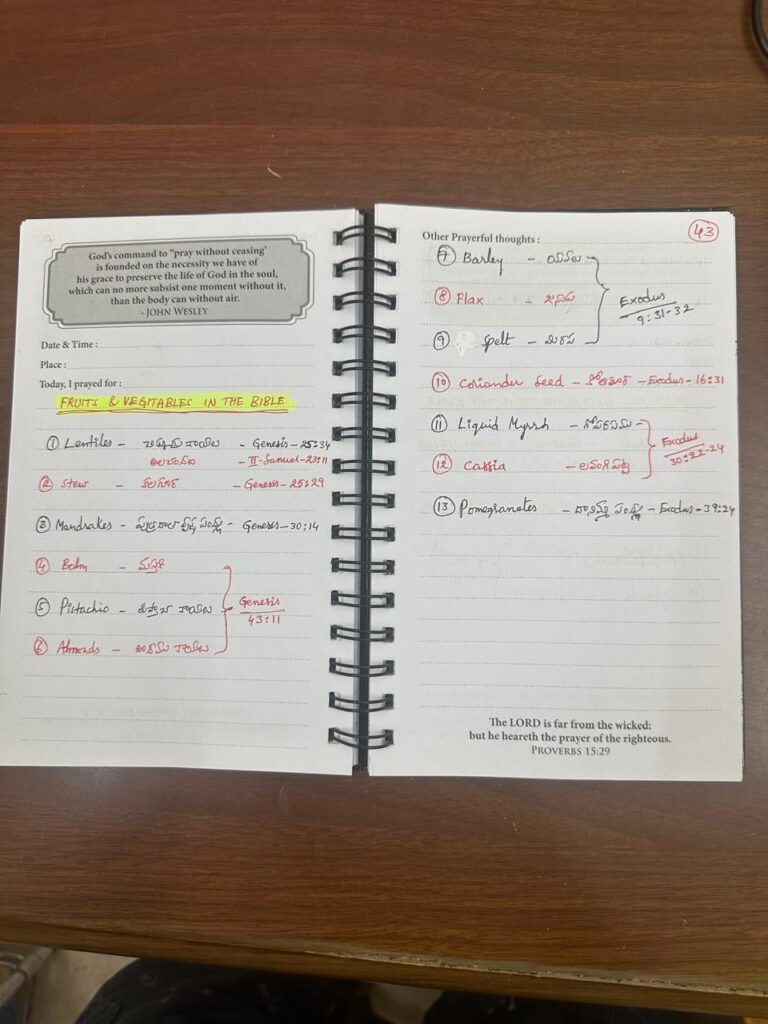 God's command to "pray without ceasing'
is founded on the necessity we have of
his grace to preserve the life of God in the soul,
which can no more subsist one moment without it,
than the body can without air.
- JOHN WESLEY
Date & Time :
Place :
Today, I prayed for :
FRUITS & VEGITABLES IN THE BIBLE
① Lentiles - చిక్కుడు కాయలు - Genesis - 25:34
అలచందలు - II - Samuel - 23:11
② Stew - కలగూర - Genesis - 25:29
③ Mandrakes - పుత్రదాత వృక్ష పండ్లు - Genesis - 30:14
④ Balm - మస్తకి
⑤ Pistachio - పిస్తా కాయలు
⑥ Almonds - బాదము కాయలు
Genesis
43:11
43
Other Prayerful thoughts :
⑦ Barley - యవలు
⑧ Flax - జనుప
⑨ Spelt - మిరప
Exodus
9:31-32
⑩ Coriander Seed - కొతిమెర - Exodus - 16:31
⑪ Liquid Myrrh - గోపరసము
⑫ Cassia - లవంగిపట్ట
Exodus
30:22-24
⑬ Pomegranates - దానిమ్మ పండ్లు - Exodus - 39:24
The LORD is far from the wicked:
but he heareth the prayer of the righteous.
PROVERBS 15:29